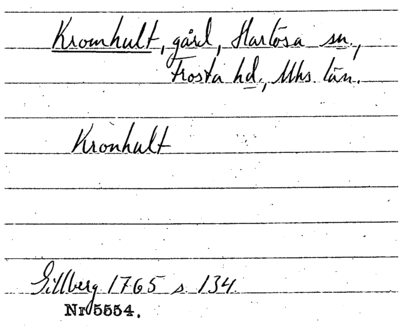 Kromhult, gård, Harlösa sn.,
Frosta hd., Mhs. län.
Kronhult
Gillberg 1765 s 134
Nr 5554.